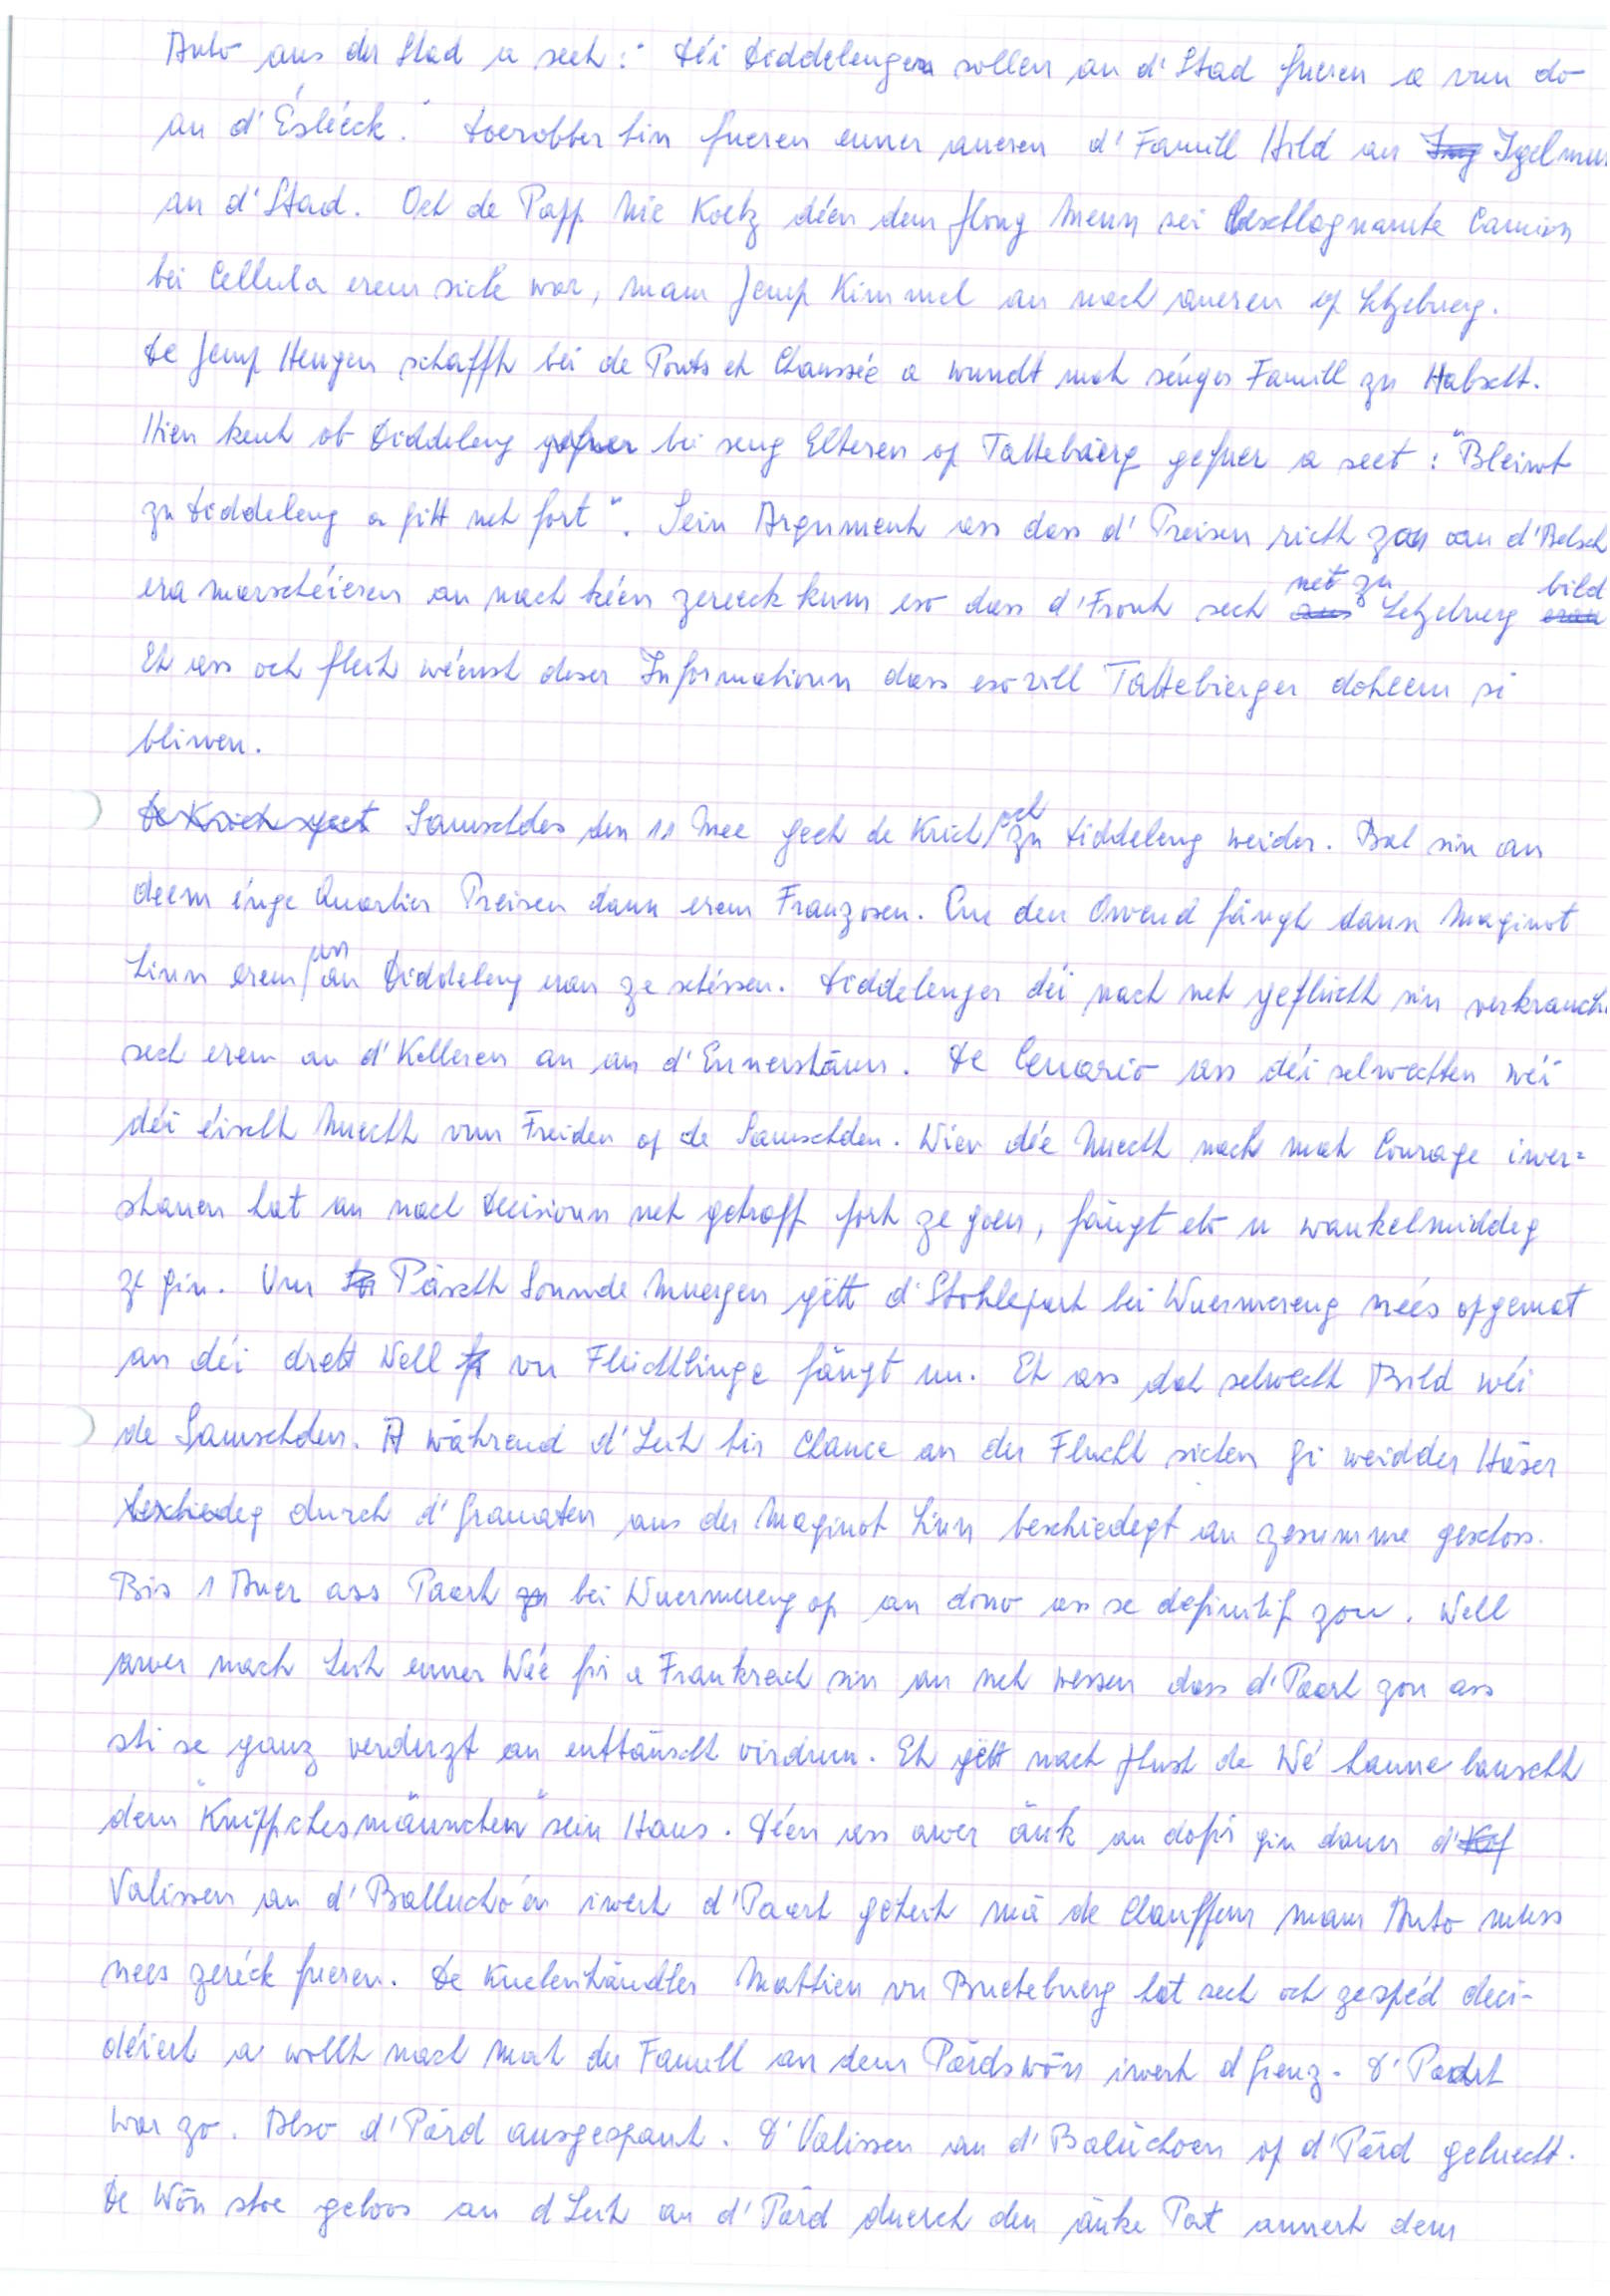 Auto aus der Stad u seet: "Déi Diddelenger sollen an d'Stad fueren a vun do
an d'Éisléck." Doerobber hin fueren enner aneren d'Famill Hild an Igelmu
an d'Stad. Och de Papp Nic Koetz déen dem Jhong Menn sei beschlagnamte Camion
bei Cellula erem siche war, mam Jemp Kimmel an nach aneren op Letzebuerg.
De Jemp Hengen schafft bei de Ponts et Chaussée a wunnt mat sénger Famill zu Habscht.
Hien kent ob Diddeleng bei seng Elteren op Tattebierg gefuer a seet: "Bleiwt
zu Diddeleng a gitt net fort". Sein Argument ass dass d'Preisen richt zou an d'Belsch
era marschéieren an nach kéen zereck kum eso dass d'Front sech net zu Letzebuerg bild
Et ass och fleit wéenst deser Informatioun dass esovill Tattebierger doheem si
bliwen.
Samschdes den 11 Mee geet de Krich och zu Diddeleng weider. Bal sin an
deem énge Quartier Preisen dann erem Franzosen. Em den Owend fängt dann Maginot
Linn erem un an Diddeleng eran ze schéissen. Diddelenger déi nach net geflücht sin verkrauch
sech erem an d'Kelleren an an d'Ennerstänn. De Cenario ass déi selwechten wéi
déi éischt Nuecht vum Freiden op de Samschden. Wien dée Nuecht nach mat Courage iwer=
stanen hat an nach Decisioun net getraff fort ze goen, fängt elo u wankelmiddeg
ze gin. Um Päischt Sonnde Muergen gëtt d'Stohlepart bei Wuermereng nées opgemat
an déi drett Well vu Flüchtlinge fängt un. Et ass dat selwecht Bild wéi
de Samschden. Während d'Leit hir Chance an der Flucht sichen gi weidder Häser
durch d'Granaten aus der Maginot Linn beschiedegt an zesumme geschoss.
Bis 1 Auer ass Paart bei Wuermereng op an dono ass se definitif zou. Well
awer nach Leit enner Wée fir a Frankreich sin an net wessen dass d'Paart zou ass
sti se ganz verduzt an enttäuscht virdrun. Et gëtt nach Jhust de Wé hanne lauscht
dem "Kniffchesmännchen" sein Haus. Déen ass awer änk an dofir gin dann d'
Valissen an d'Balluchoén iwert d'Paart geheit mä de Chauffeur mam Auto muss
nees zeréck fueren. De Kuelenhändler Mathieu vu Buetebuerg hat sech och zespéd deci-
déiert a wollt nach mat der Famill an dem Pärdswôn iwert d Grenz. D'Paart
war zo. Also d'Pärd ausgespant. D'Valissen an d'Balüchoen op d'Pärd gelueckt.
De Wôn stoe geloos an d Leit an d'Pärd duerch den änke Pat annert dem